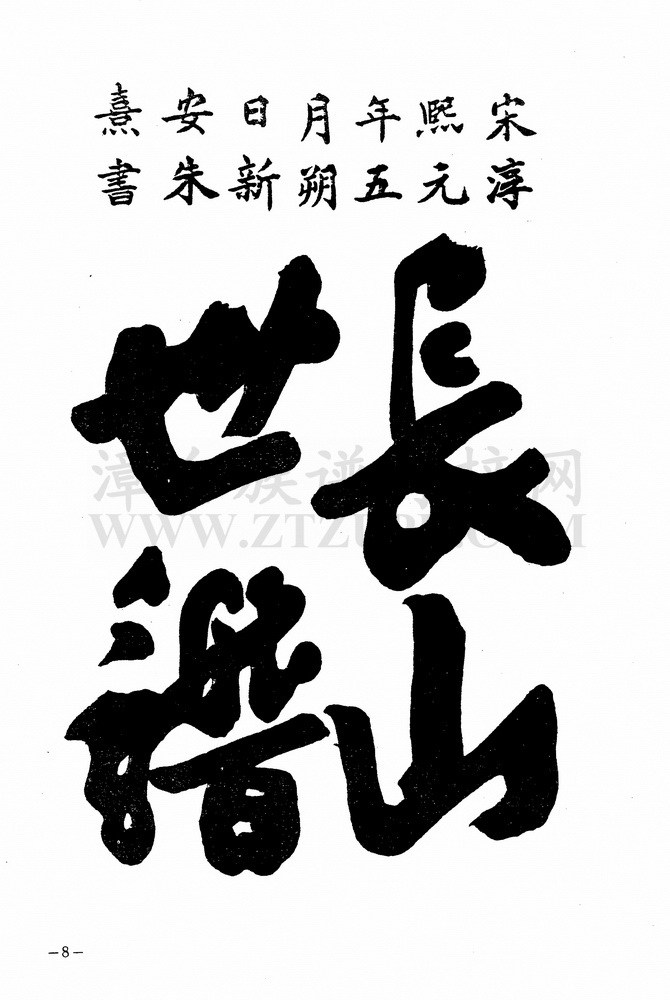 宋淳
熙元
年五
月朔
日新
安朱
熹書
長山
世譜
漳台族谱对接网
WWW.ZTZUPU.COM
—8—